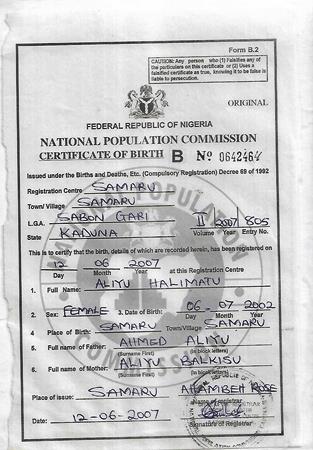 Form B.2
CAUTION: Any person who (1) Falsifies any of
the particulars on this certificate or (2) Uses a
falsified certificate as true, knowing it to be false is
liable to persecution.
ORIGINAL
FEDERAL REPUBLIC OF NIGERIA
NATIONAL POPULATION COMMISSION
CERTIFICATE OF BIRTH B Nº 0642464
Issued under the Births and Deaths, Etc. (Compulsory Registration) Decree 69 of 1992
Registration Centre SAMARU
Town/ Village SAMARU
L.G.A. SABON GARI II 2007 805
State KADUNA Volume Year Entry No.
This is to certify that the birth, details of which are recorded herein, has been registered on
12 06 2007
Day Month Year at this Registration Centre
1. Full Name: ALIYU HALIMATU
(Surname First) (in block letters)
2. Sex: FEMALE 3. Date of Birth: 06-07-2002
Day Month Year
4. Place of Birth: SAMARU Town/Village SAMARU
5. Full name of Father: AHMED ALIYU
(Surname First) (in block letters)
6. Full name of Mother: ALIYU BALKISU
(Surname First) (in block letters)
Place of issue: SAMARU ROSE
Name of registrar
Date: 12-06-2007
Signature of Registrar